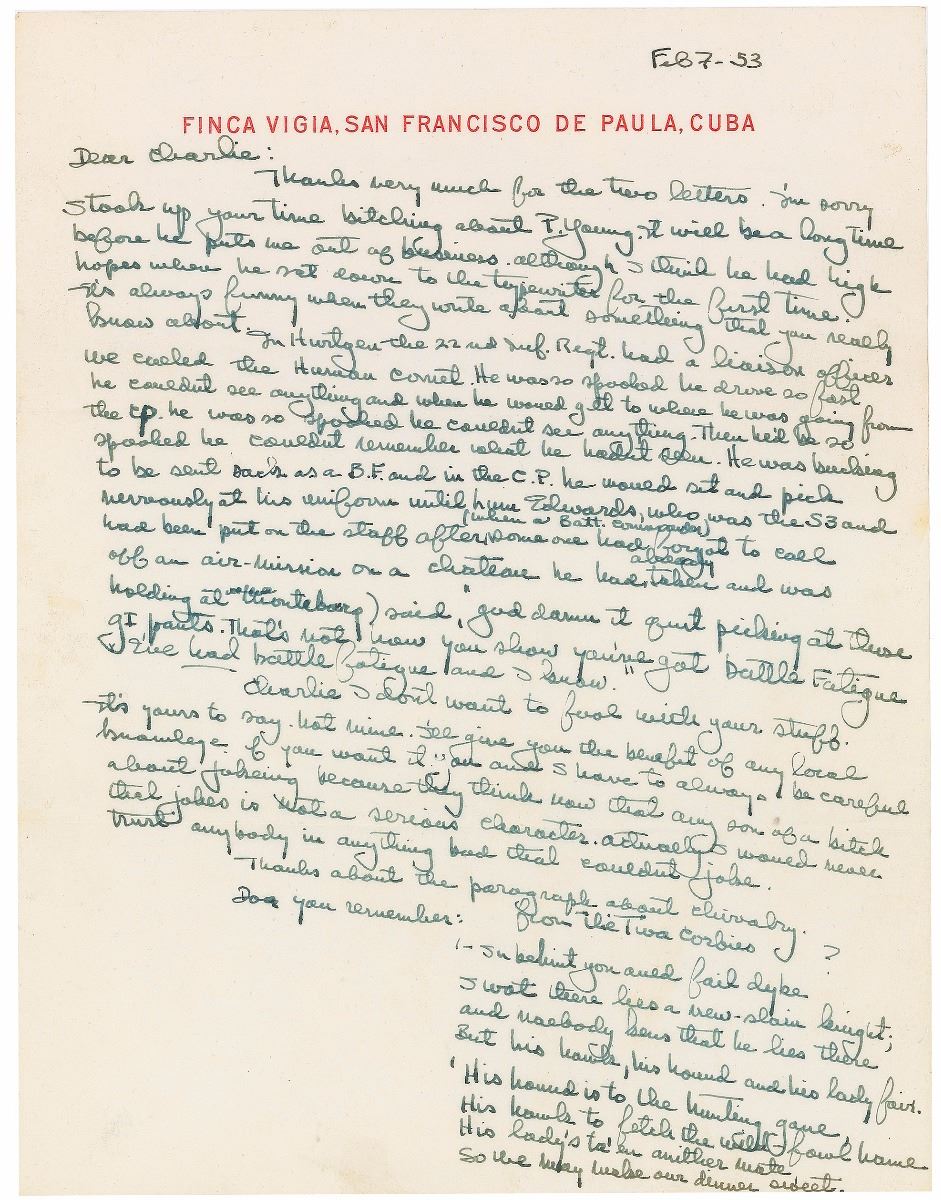 Feb 7 - 53
FINCA VIGIA, SAN FRANCISCO DE PAULA, CUBA
Dear Charlie:
Thanks very much for the two letters. I'm sorry
I took up your time bitching about P. Young. It will be a long time
before he puts me out of business. although I think he had high
hopes when he sat down to the typewriter for the first time.
It's always funny when they write about something that you really
know about.
In Hurtgen the 22nd Inf. Regt. had a liaison officer
we called the Human comet. He was so spooked he drove so fast
he couldn't see anything and when he would get to where he was going from
the CP. he was so spooked he couldn't see anything. Then he'd be so
spooked he couldn't remember what he hadn't seen. He was bucking
to be sent back as a B.F. and in the C.P. he would sit and pick
nervously at his uniform until Edwards, who was the S3 and
(when a Batt. commander)
had been put on the staff after some one had forgot to call
already
off an air-mission on a chateau he had taken and was
holding at ) said, "god damn it quit picking at those
GI pants. That's not how you show you've got Battle Fatigue
I've had battle fatigue and I know."
Charlie I don't want to fool with your stuff.
It's yours to say. not mine. I'll give you the benefit of any local
knowlege if you want it. and I have to always be careful
about jokeing because they think now that any son of a bitch
that jokes is not a serious character. actually I would never
trust anybody in anything bad that couldn't joke.
Thanks about the paragraph about chivalry.
Do you remember: from The Twa Corbies ?
'- In behint yon auld fail dyke
I wot there lies a new-slain knight;
and naebody kens that he lies there
But his hawk, his hound and his lady fair.
'His hound is to the hunting gane,
His hawk to fetch the wild-fowl hame
His lady's ta'en anither mate
So we may make our dinner sweet.